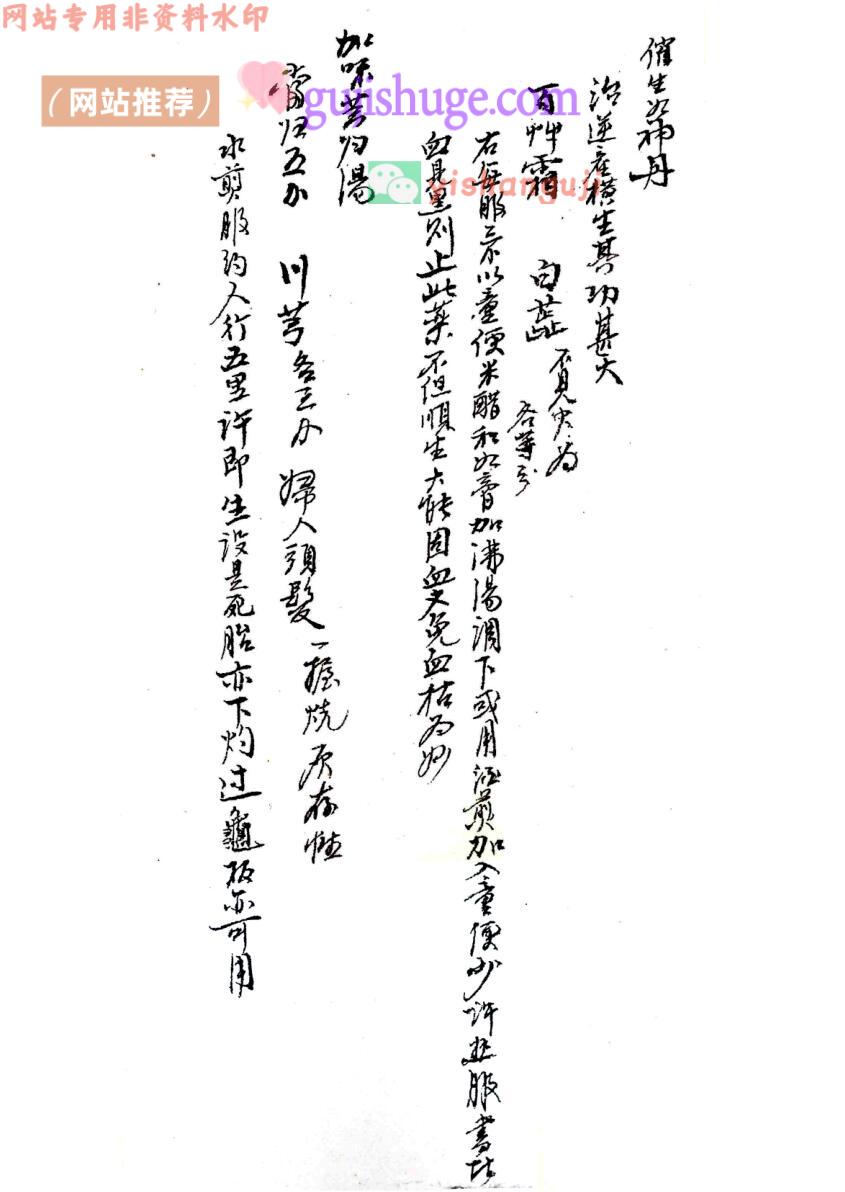 网站专用非资料水印
（网站推荐）
guishuge.com
yishanguji
催生如神丹
治逆产横生其功甚大
百艸霜 白芷 不见火为 各等分
右每服三不以童便米醋和如膏加沸汤调下或用酒煎加入童便少许
血見黑则止此薬不但順生大能固血又免血枯为妙
加味芎归湯
當归五 川芎各三 婦人頭髮一握烧灰存性
水煎服约人行五里许即生设是死胎亦下灼过龜板亦可用